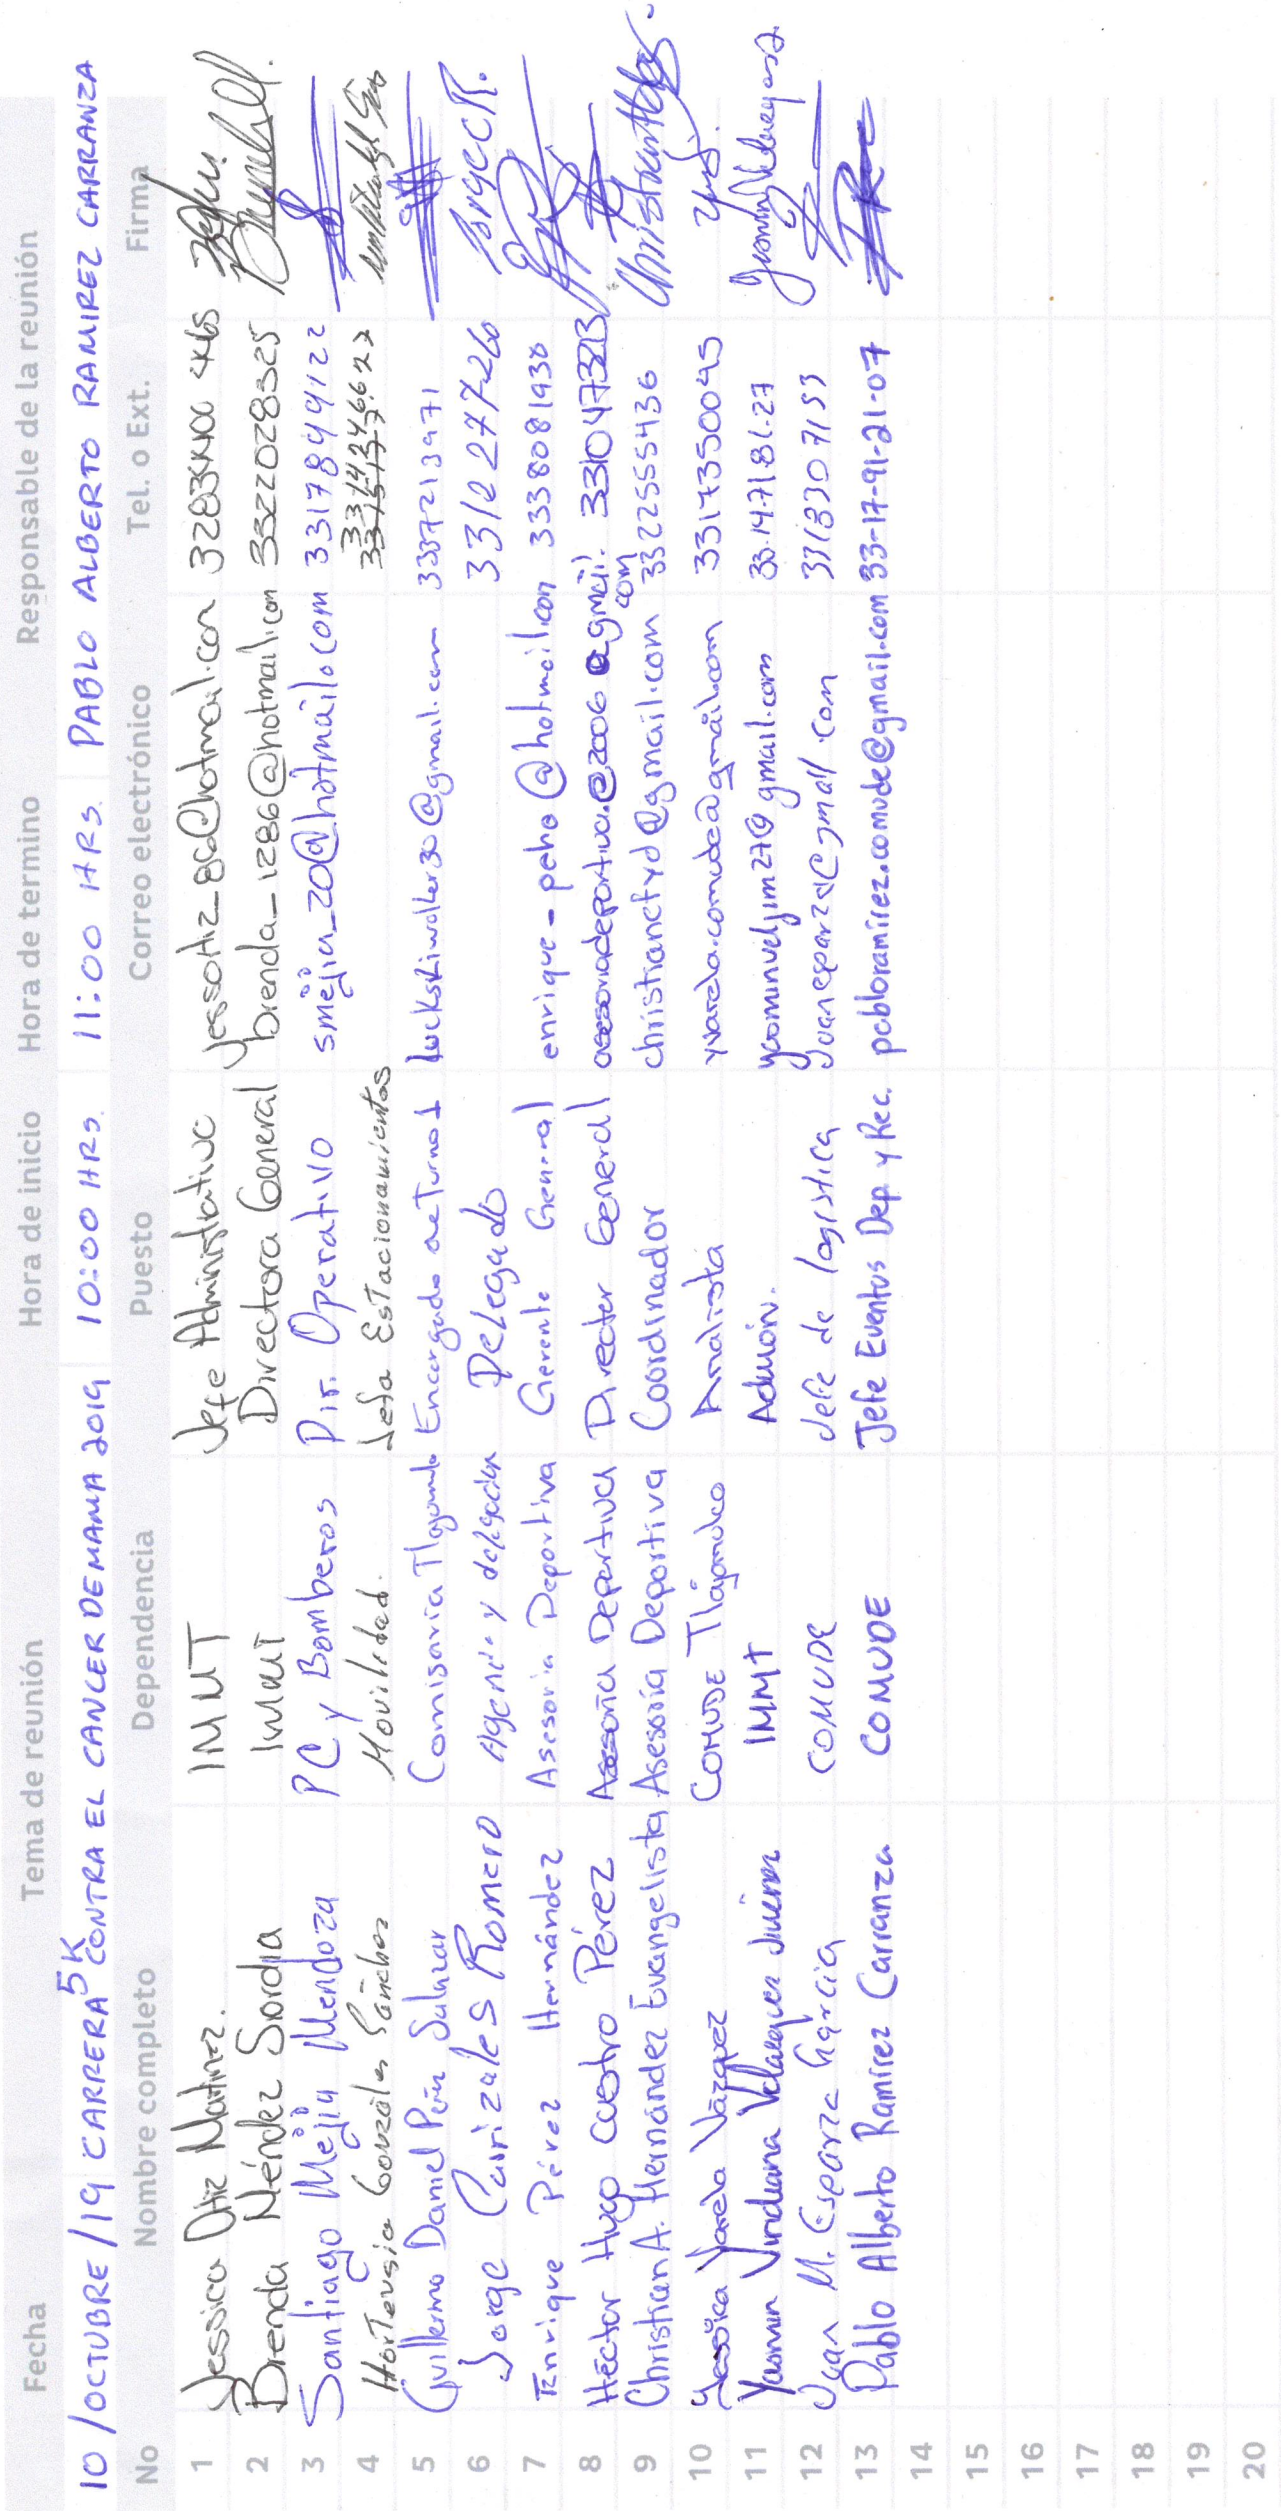 Fecha Tema de reunión Hora de inicio Hora de termino Responsable de la reunión
10 /OCTUBRE /19 CARRERA 5K CONTRA EL CANCER DE MAMA 2019 10:00 HRS. 11:00 HRS. PABLO ALBERTO RAMIREZ CARRANZA
No Nombre completo Dependencia Puesto Correo electrónico Tel. o Ext. Firma
1 Yessica Ortiz Martinez. IMMT Jefe Administrativo
2 Brenda Méndez Siordia IMMT Directora General brenda_1286@hotmail.com 3322028325
3 Santiago Mejia Mendoza PC y Bomberos Dir. Operativo smejia_20@hotmail.com 3317849122
4 Hortensia González Sánchez Movilidad. Jefa Estacionamientos
5 Guillermo Daniel Peña Salazar Comisaria Tlajomulco Encargado de Turno 1 luckskiwalker30@gmail.com 3337213971
6 Jorge Carrizales Romero Agencias y delegacion Delegado 3312277260 Jorge C R.
7 Enrique Pérez Hernández Asesoria Deportiva Gerente General enrique-peho@hotmail.com 3338081938
8 Héctor Hugo Castro Pérez Asesoría Deportiva Director General 3310473213
9 Christian A. Hernández Evangelista Asesoría Deportiva Coordinador christianefyd@gmail.com 3322555436
10 Yessica Varela Vázquez COMUDE Tlajomulco Analista yvarela.comude@gmail.com 3317350095
11 Yasmin Viridiana Velazquez Jimenez IMMT Admón. 33.14.71.81.27
12 Juan M. Esparza Garcia COMUDE Jefe de logistica 3318307153
13 Pablo Alberto Ramírez Carranza COMUDE Jefe Eventos Dep. y Rec. pabloramirez.comude@gmail.com 33-17-91-21-07
14
15
16
17
18
19
20